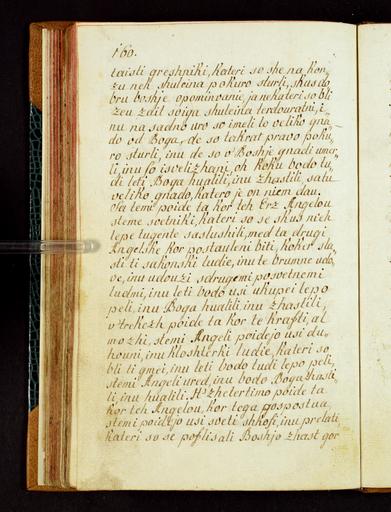 160.
taisti greshniki, kateri so she na kon,,
zu neh shuleina pokuro sturli, skus do
bru boshje opominvanie, ja nekateri so bli
zeu zait soiga shuleina terdouratni, i,,
nu na sadno uro so imeli to veliko gna,,
do od Boga, de so takrat pravo poku,,
ro sturli, inu de so v Boshje gnadi umer,,
li, inu so isvelizhani, oh koku bodo tu,,
di leti Boga hualili, inu zhastili, satu
veliko gnado, katero je on niem dau.
Ta temu poide ta kor teh Erz Angelou
steme svetniki, kateri so se skus nieh
lepe tugnte saslushili, med ta drugi
Angelske kor postauleni biti, koker sla,,
sti ti sakonski ludie, inu te brumne udo,,
ve, inu udouzi sdrugemi posvetnemi
ludmi, inu leti bodo usi ukupei lepo
peli, inu Boga hualili, inu zhastili.
v trekzh poide ta kor te krafti, al
mozhi, stemi Angeli poidejo usi du,,
houni, inu kloshterki ludie, kateri so
bli ti gmei, inu leti bodo tudi lepo peli,
stemi Angeli ured, inu bodo Boga zhasti,,
li, inu hualili. H'zhetertimo poide ta
kor teh Angelou, kor tega gospostua,
stemi poidejo usi sveti shkofi, inu prelati
kateri so se poflisali Boshjo zhast gor